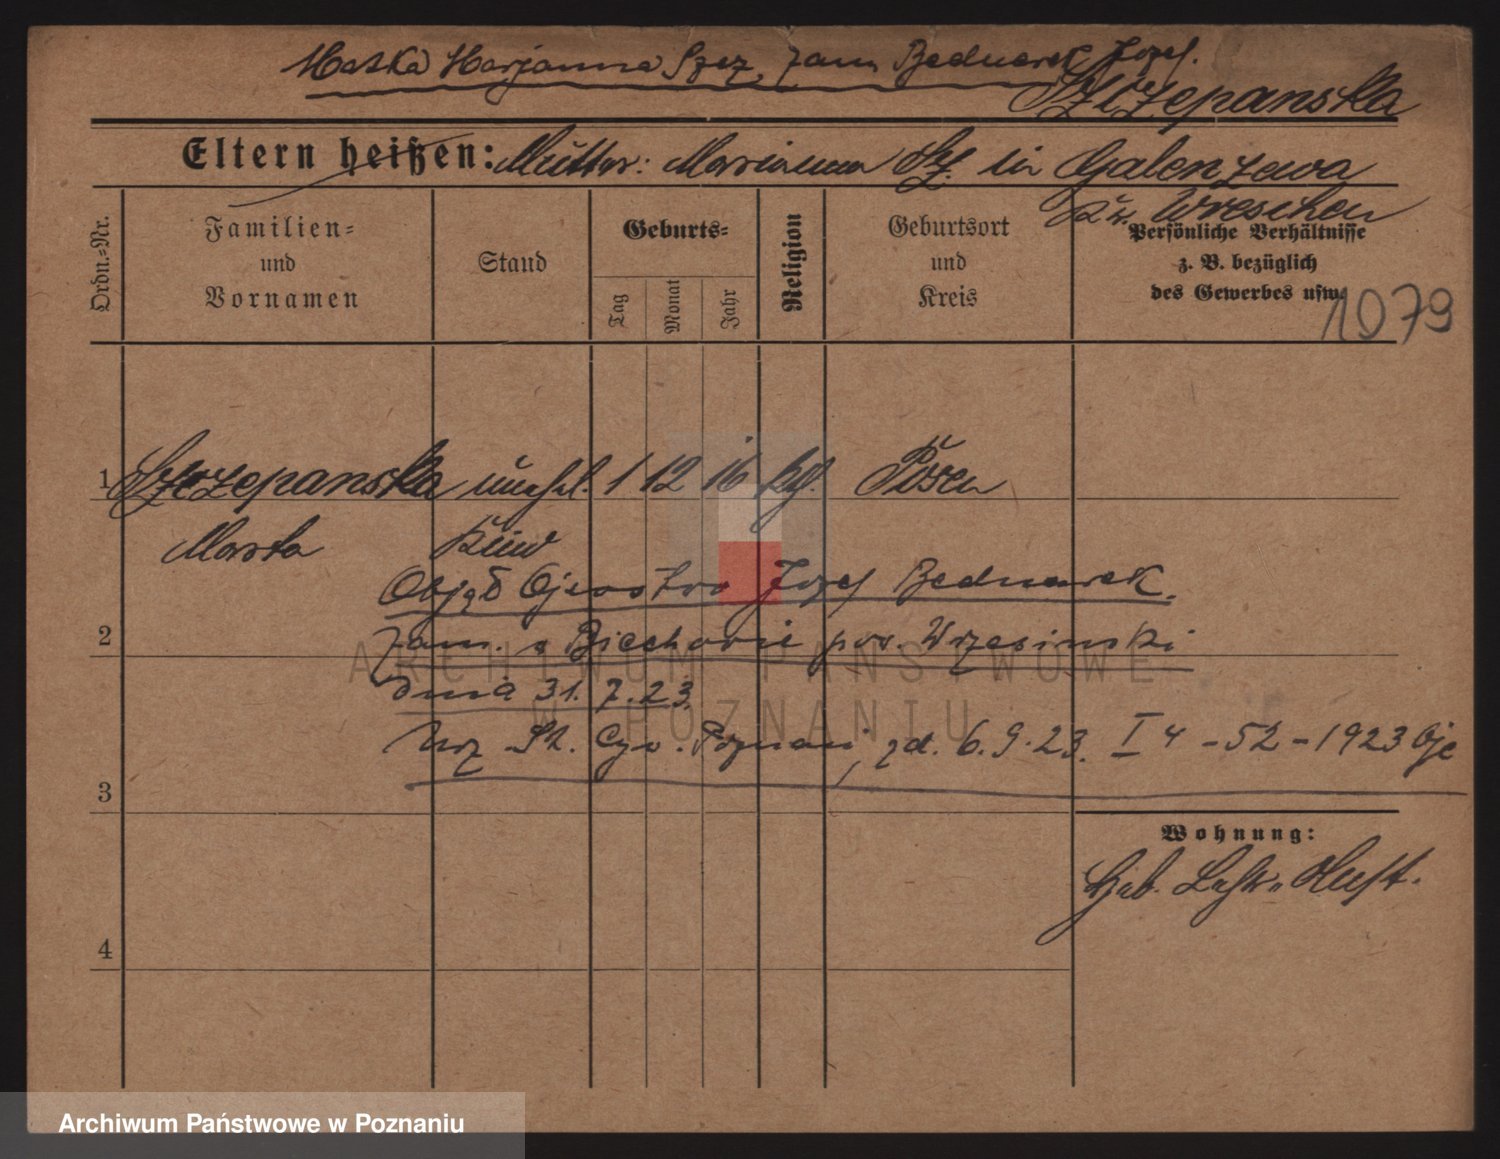 Matka Marjanna Szcz. zam. Bednarek Józef.
Szczepanska
Eltern heißen: Mutter: Marianna Sz. in Galenzewa
Kr. Wreschen
Ordn.-Nr.
Familien-
und
Vornamen
Stand
Geburts-
Tag
Monat
Jahr
Religion
Geburtsort
und
Kreis
Persönliche Verhältnisse
z. B. bezüglich
des Gewerbes usw.
1079
1 Szczepanska unehel. 1 12 16 kg. Posen
Marta Kind
Objął Ojcostwo Józef Bednarek.
2 zam. w Biechowie pow. Wrzesinski
dnia 31. 7. 23.
Urz St. Cyw. Poznań, zd. 6. 9. 23. I 4 - 52 - 1923
3
Wohnung:
4
ARCHIWUM PAŃSTWOWE
W POZNANIU
Archiwum Państwowe w Poznaniu